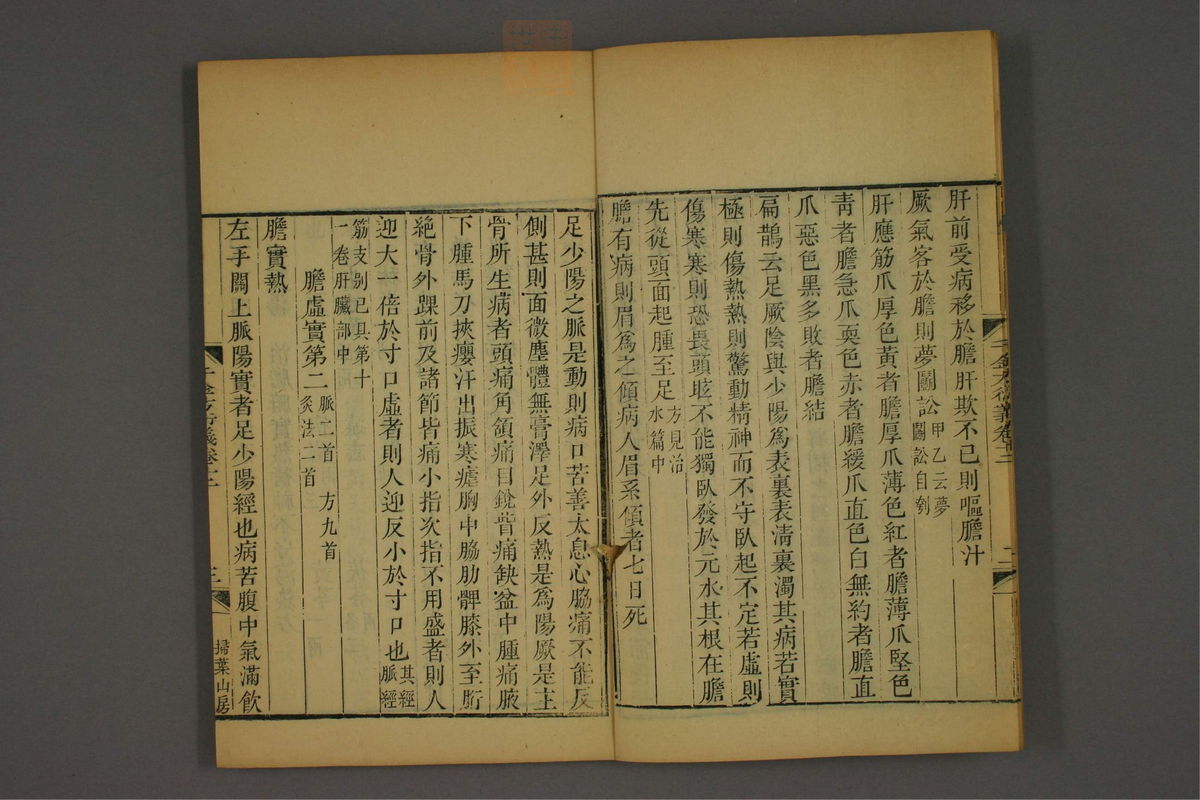 肝前受病移於膽肝欺不已則嘔膽汁
厥氣客於膽則夢鬬訟甲乙云夢鬬訟自刳
肝應筋爪厚色黃者膽厚爪薄色紅者膽薄爪堅色
靑者膽急爪耎色赤者膽緩爪直色白無約者膽直
爪惡色黑多敗者膽結
扁鵲云足厥陰與少陽爲表裏表淸裏濁其病若實
極則傷熱熱則驚動精神而不守臥起不定若虛則
傷寒寒則恐畏頭眩不能獨臥發於元水其根在膽
先從頭面起腫至足方見治水篇中
膽有病則眉爲之傾病人眉系傾者七日死
千金方衍義卷十二
二
足少陽之脈是動則病口苦善太息心脇痛不能反
側甚則面微塵體無膏澤足外反熱是爲陽厥是主
骨所生病者頭痛角頷痛目銳眥痛缺盆中腫痛腋
下腫馬刀挾癭汗出振寒瘧胸中脇肋髀膝外至胻
絕骨外踝前及諸節皆痛小指次指不用盛者則人
迎大一倍於寸口虛者則人迎反小於寸口也其經脈經
筋支別已具第十一卷肝臟部中
膽虛實第二脈二首 方九首 灸法二首
膽實熱
左手關上脈陽實者足少陽經也病苦腹中氣滿飲
千金方衍義卷十二
三
掃葉山房